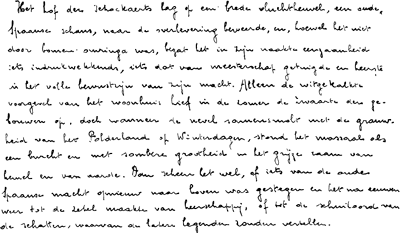 Het hof der Schockaerts lag op een brede vluchtheuvel, een oude,
spaanse schans, naar de overlevering beweerde, en, hoewel het niet
door bomen omringd was, bezat het in zijn naakte eenzaamheid
iets indrukwekkends, iets dat van meesterschap getuigde en heerste
in het volle bewustzijn van zijn macht. Alleen de witgekalkte
voorgevel van het woonhuis hief in de zomer de zwaarte der ge-
bouwen op, doch wanneer de nevel samensmolt met de grauw-
heid van het Polderland op Winterdagen, stond het massaal als
een burcht en met sombere grootheid in het grijze raam van
hemel en van aarde. Dan scheen het wel, of iets van de oude
spaanse macht opnieuw naar boven was gestegen en het na eeuwen
weer tot de zetel maakte van heerschappij, of tot de schuiloord van
de schatten, waarvan de latere legenden zouden vertellen.